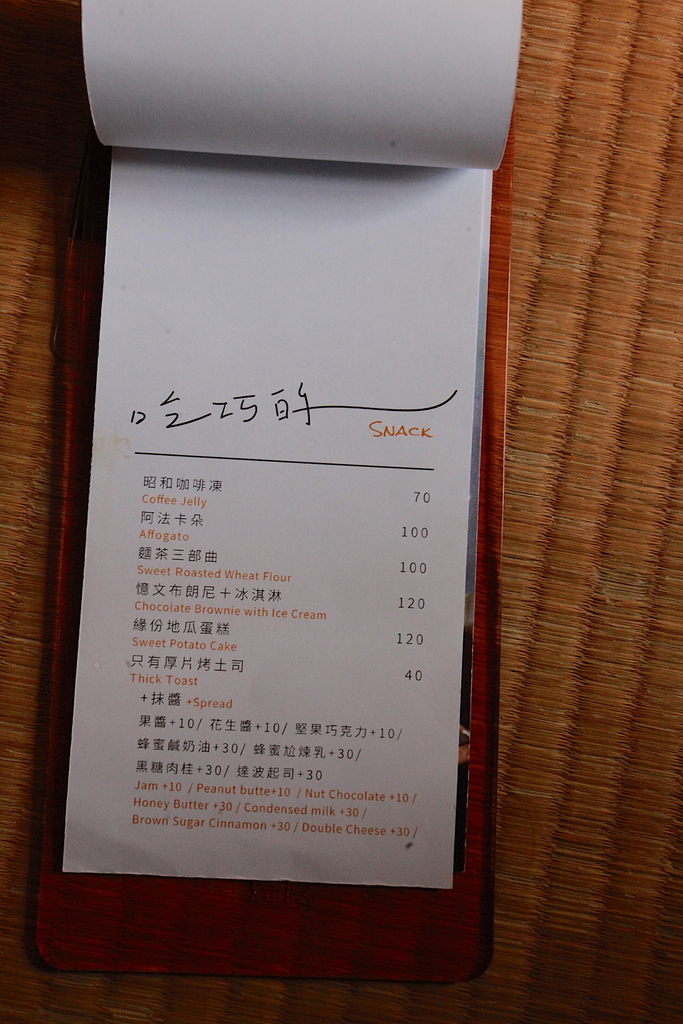 吃巧的
SNACK
昭和咖啡凍 70
Coffee Jelly
阿法卡朵 100
Affogato
麵茶三部曲 100
Sweet Roasted Wheat Flour
憶文布朗尼＋冰淇淋 120
Chocolate Brownie with Ice Cream
緣份地瓜蛋糕 120
Sweet Potato Cake
只有厚片烤土司 40
Thick Toast
+抹醬 +Spread
果醬+10/ 花生醬+10/ 堅果巧克力+10/
蜂蜜鹹奶油+30/ 蜂蜜尬煉乳+30/
黑糖肉桂+30/ 達波起司+30
Jam +10 / Peanut butte+10 / Nut Chocolate +10 /
Honey Butter +30 / Condensed milk +30 /
Brown Sugar Cinnamon +30 / Double Cheese +30 /